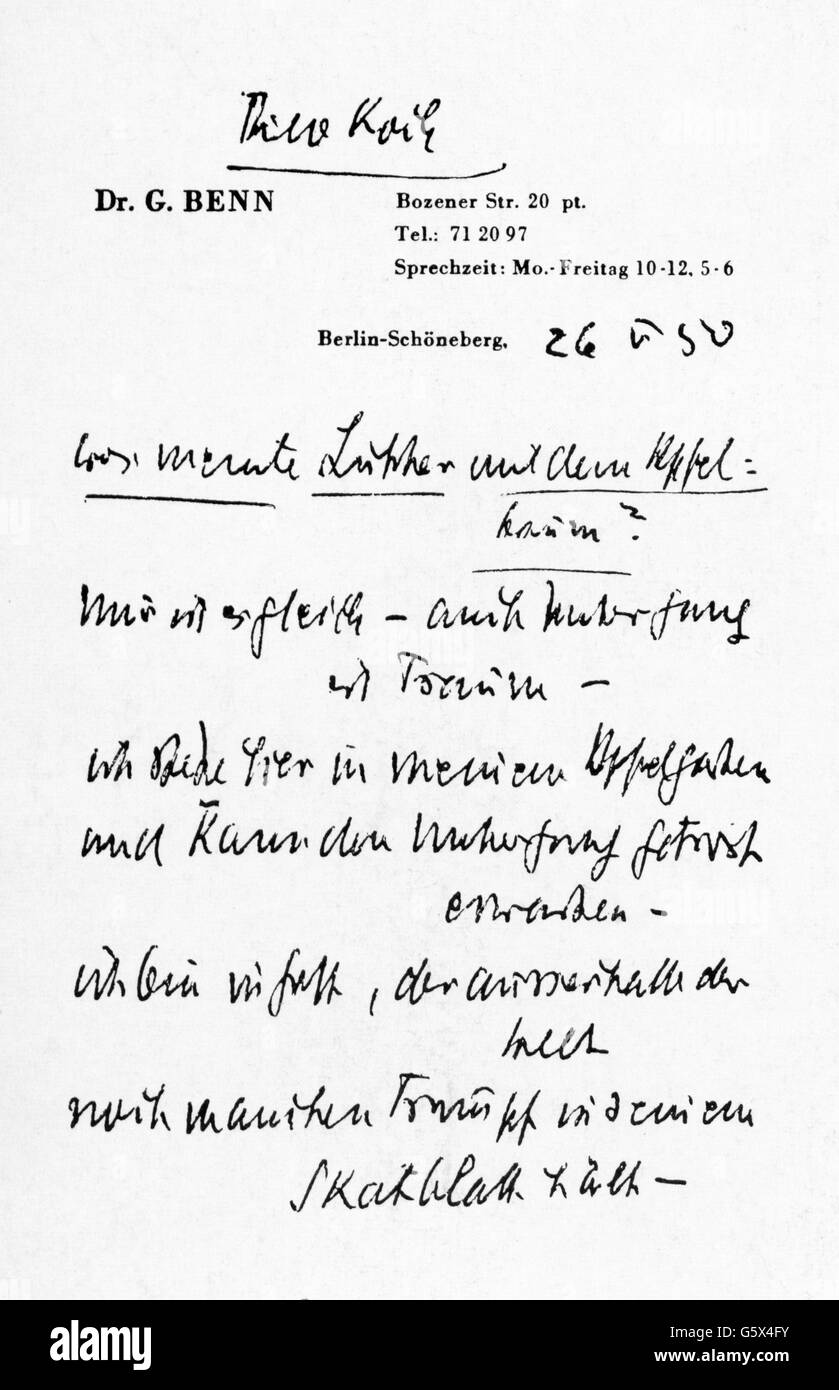 Thilo Koch
Dr. G. BENN
Bozener Str. 20 pt.
Tel.: 71 20 97
Sprechzeit: Mo.-Freitag 10-12, 5-6
Berlin-Schöneberg, 26 V 50
Was meinte Luther mit dem Apfel=
baum?
Mir ist es gleich – auch Untergang
ist Traum –
ich stehe hier in meinem Apfelgarten
und kann den Untergang getrost
erwarten –
ich bin in Gott, der ausserhalb der
Welt
noch manchen Trumpf in seinem
Skatblatt hält –
alamy
Image ID: G5X4FY
www.alamy.com